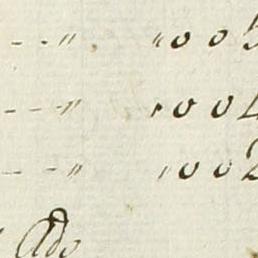 - - - " " 0 0 5
- - - " " 0 0 4
- - - " " 0 0 2
Ado